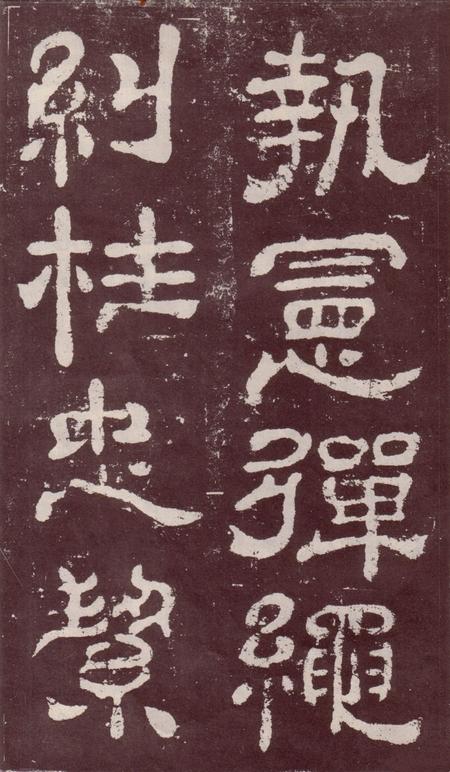 執憲彈繩
糾枉忠絜